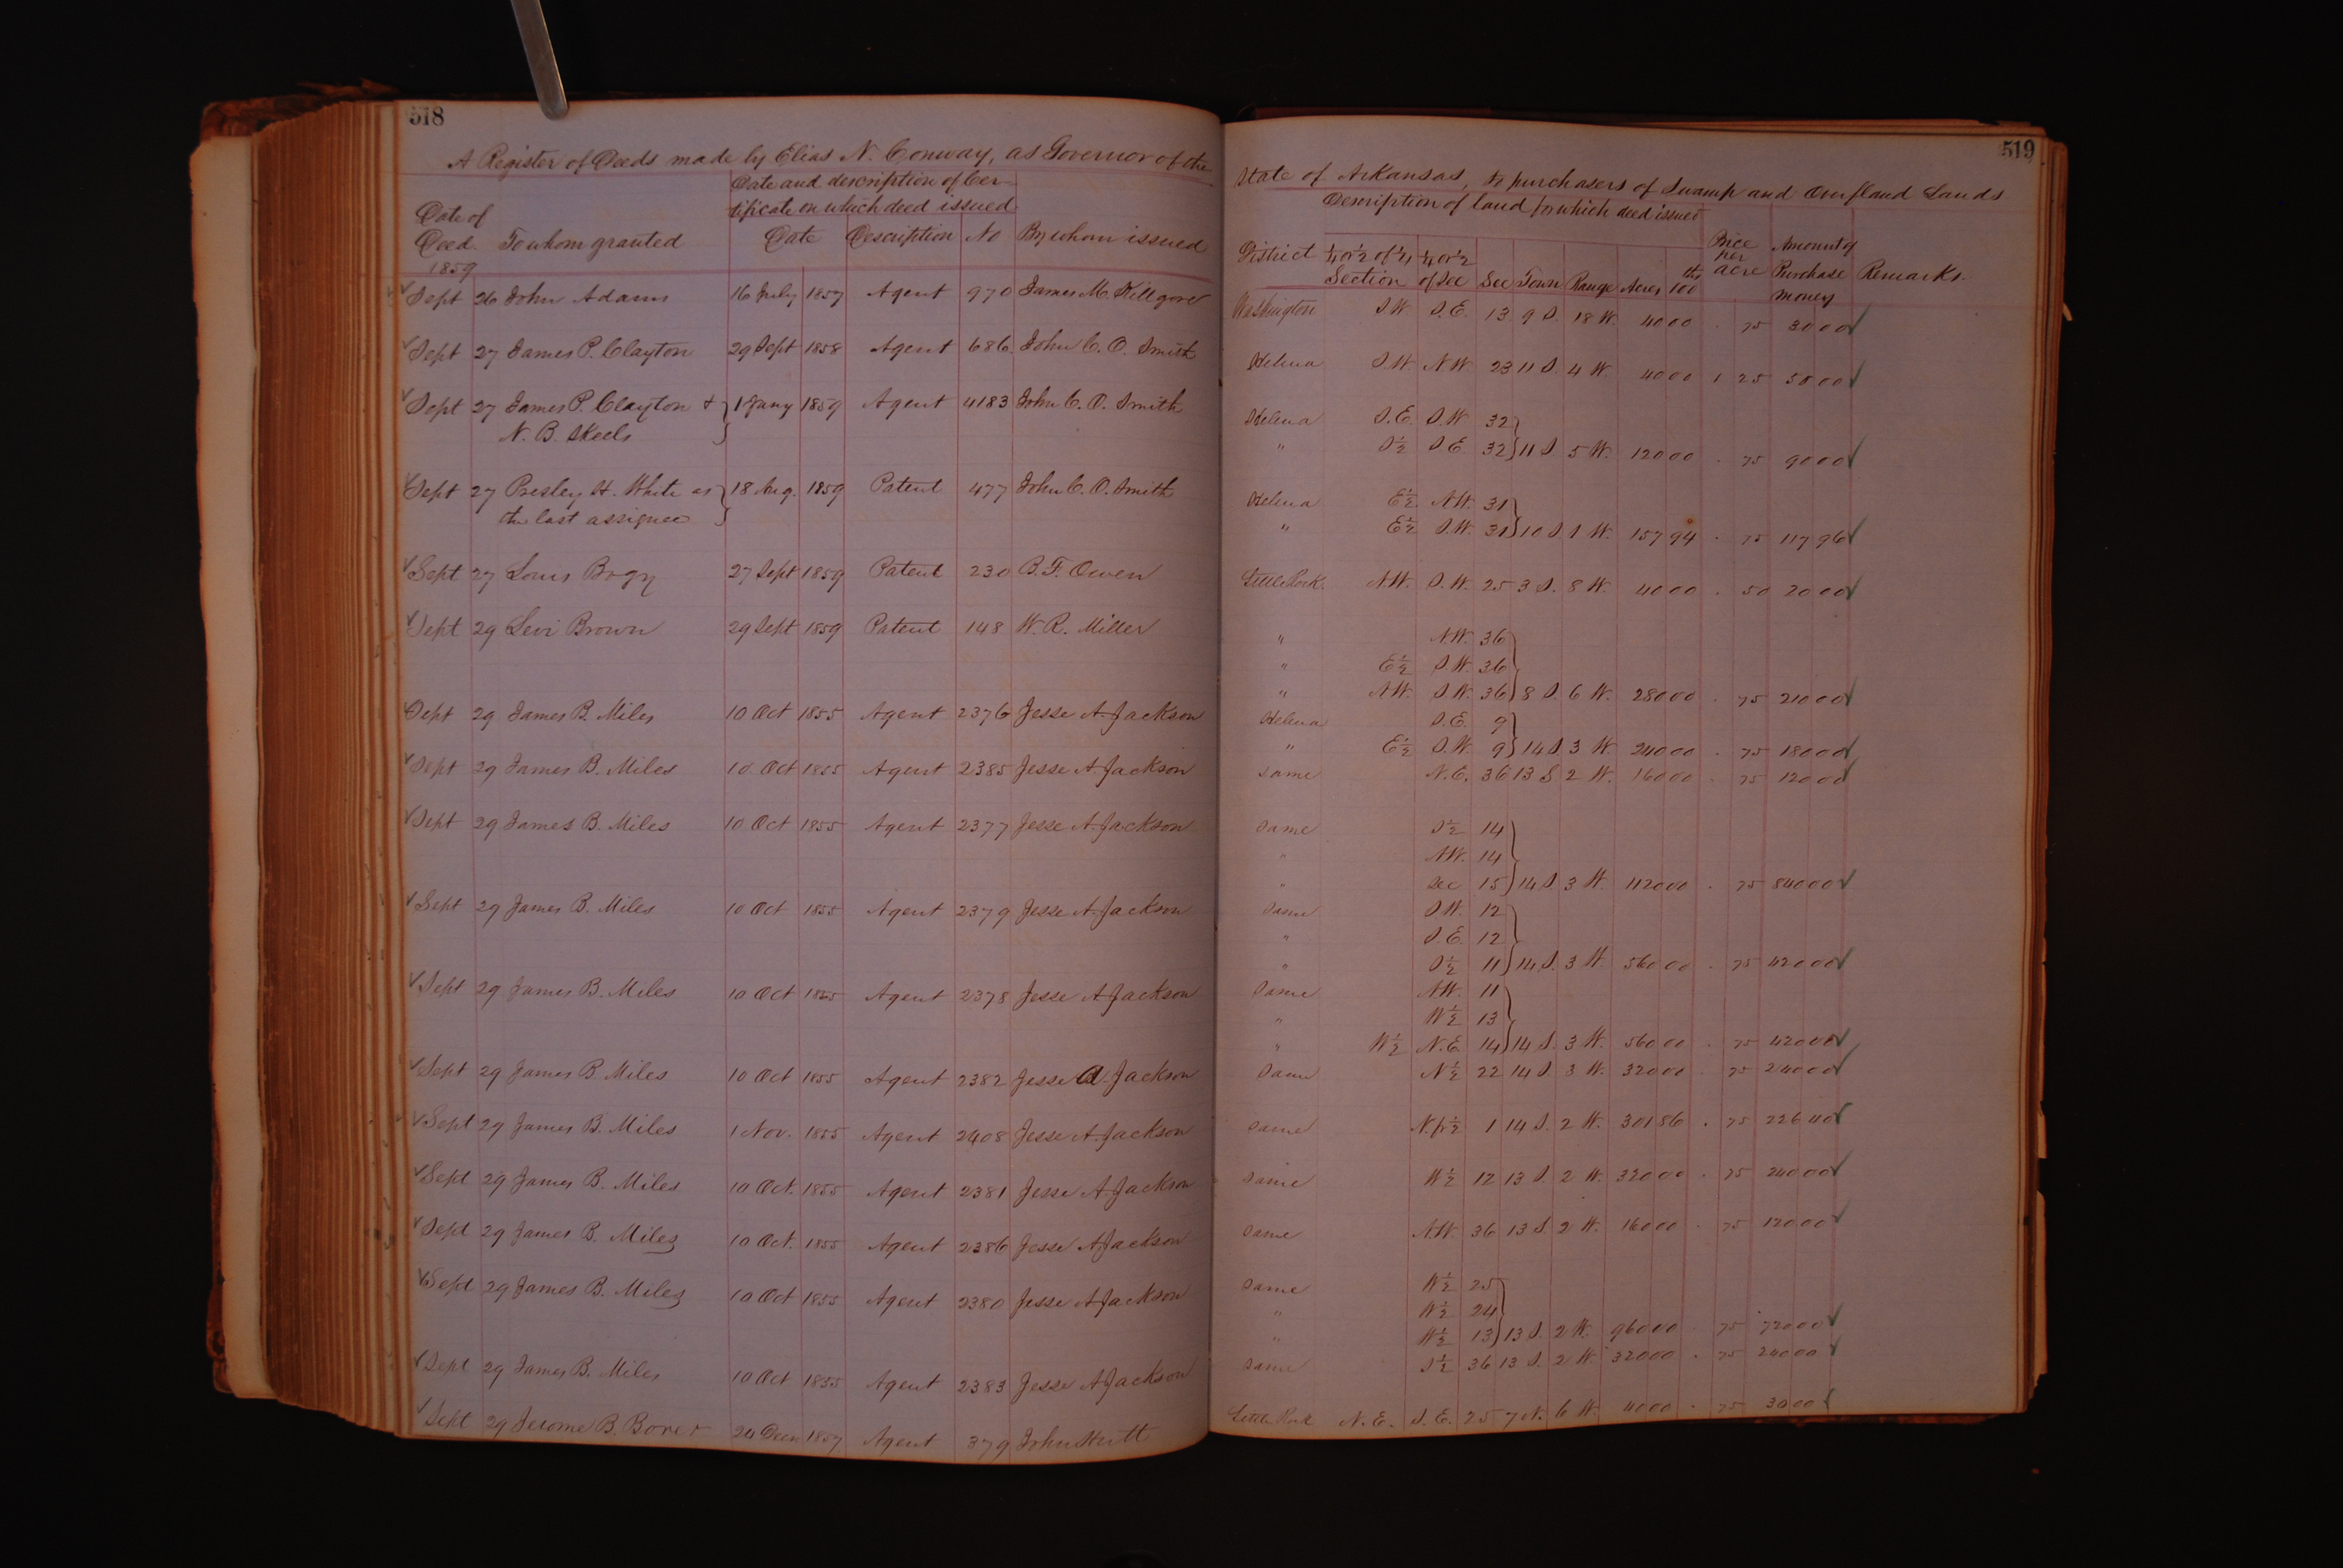 518
A Register of Deeds made by Elias N. Conway, as Governor of the
Date of Deed To whom granted Date and description of Cer-
tificate on which deed issued
Date Description No By whom issued
1859
Sept 26 John Adams 16 July 1857 Agent 970 James M. Killgore
Sept 27 James P. Clayton 29 Sept 1858 Agent 686 John C. O. Smith
Sept 27 James P. Clayton + 1 Jany 1859 Agent 4183 John C. O. Smith
N. B. Skeels
Sept 27 Presley H. White as 18 Aug. 1859 Patent 477 John C. O. Smith
the last assignee
Sept 27 Louis Bogy 27 Sept 1859 Patent 230 B. F. Owen
Sept 29 Levi Brown 29 Sept 1859 Patent 148 W. R. Miller
Sept 29 James B. Miles 10 Oct 1855 Agent 2376 Jesse A. Jackson
Sept 29 James B. Miles 10 Oct 1855 Agent 2385 Jesse A. Jackson
Sept 29 James B. Miles 10 Oct 1855 Agent 2377 Jesse A. Jackson
Sept 29 James B. Miles 10 Oct 1855 Agent 2379 Jesse A. Jackson
Sept 29 James B. Miles 10 Oct 1855 Agent 2378 Jesse A. Jackson
Sept 29 James B. Miles 10 Oct 1855 Agent 2382 Jesse A. Jackson
Sept 29 James B. Miles 1 Nov. 1855 Agent 2408 Jesse A. Jackson
Sept 29 James B. Miles 10 Oct. 1855 Agent 2381 Jesse A. Jackson
Sept 29 James B. Miles 10 Oct. 1855 Agent 2386 Jesse A. Jackson
Sept 29 James B. Miles 10 Oct 1855 Agent 2380 Jesse A. Jackson
Sept 29 James B. Miles 10 Oct 1855 Agent 2383 Jesse A. Jackson
Sept 29 Jerome B. 24 Decm 1857 Agent 379 John Hutt
519
State of Arkansas, to purchasers of Swamp and Overfland Lands
Description of land for which deed issued
District ¼ or ½ of ¼ Section ¼ or ½ of Sec Sec Town Range Acres 100ths Price per acre Amount of Purchase money Remarks.
Washington S.W. S.E. 13 9 S. 18 W. 40 00 . 75 30 00
Helena S.W. N.W. 23 11 S. 4 W. 40 00 1 25 50 00
Helena S.E. S.W. 32
" S½ S.E. 32 11 S. 5 W. 120 00 . 75 90 00
Helena E½ N.W. 31
" E½ S.W. 31 10 S 1 W. 157 94 . 75 117 96
Little Rock. N.W. S.W. 25 3 S. 8 W. 40 00 . 50 20 00
" N.W. 36
" E½ S.W. 36
" N.W. S.W. 36 8 S. 6 W. 280 00 . 75 210 00
Helena S.E. 9
" E½ S.W. 9 14 S. 3 W. 240 00 . 75 180 00
same N.E. 36 13 S 2 W. 160 00 . 75 120 00
same S½ 14
" N.W. 14
" Sec 15 14 S. 3 W. 1120 00 . 75 840 00
Same S.W. 12
" S.E. 12
" S½ 11 14 S. 3 W. 560 00 . 75 420 00
Same N.W. 11
" W½ 13
" W½ N.E. 14 14 S. 3 W. 560 00 . 75 420 00
Same N½ 22 14 S. 3 W. 320 00 . 75 240 00
same N.fr½ 1 14 S. 2 W. 301 86 . 75 226 40
same W½ 12 13 S. 2 W. 320 00 . 75 240 00
same N.W. 36 13 S. 2 W. 160 00 . 75 120 00
same W½ 25
" W½ 24
" W½ 13 13 S. 2 W. 960 00 . 75 720 00
same S½ 36 13 S. 2 W. 320 00 . 75 240 00
Little Rock N.E. S.E. 25 7 N. 6 W. 40 00 . 75 30 00